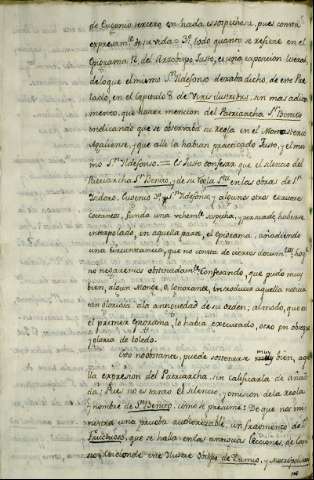 de Eugenio tercero en nada es sospechosa, pues consta
expresam.te de su vida = 3.º todo quanto se refiere en el
Epigrama 12. del Arzobispo Justo, es una exposicion
de lo que el mismo S.n Ildefonso dexaba dicho, de este Pre-
lado, en el Capitulo 8 de Viris illustribus, sin mas adita-
mento, que hacer mencion del Patriarcha S.n Benito
indicando que se observaba su Regla en el Monasterio
Agaliense, y que alli la habian practicado Justo, y el mis-
mo S.n Ildefonso. = Es justo confesar que el silencio del
Patriarcha S.n Benito, y de su Regla S.ta en las obras de S.n
Isidoro, Eugenio 3.º y S.n Ildefonso, y algunos otros
funda una vehem.te sospecha, y persuade haberse
interpolado, en aquella parte, el Epigrama, añadiendo
una circunstancia, que no consta de ciertos docum.tos
no negaremos obstinadam.te Confesando, que pudo muy
bien, algun Monge, o ignorante, introducir aquella noticia
en gloria de la antiguedad de su orden; al modo, que en
el primer Epigrama, lo habia executado, otro en obsequio
y gloria de toledo.
Esto no obstante, puede sostenerse muy bien, aque-
lla expresion del Patriarcha, sin calificarla de añadi-
da; Pues no es tanto el silencio, y omision de la regla
y nombre de S.n Benito, como se presume: De que nos mi-
nistra una prueba autorizable, un fragmento de S.n
Fructuoso, que se halla en las antiguas Lecciones, de la
este Ilustre Obispo de Dumio, y Metropolitano